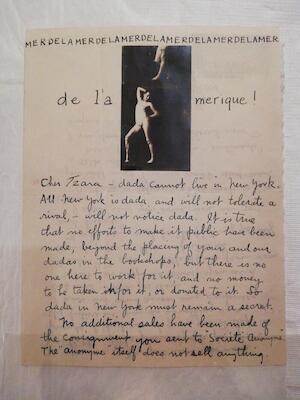 MERDELAMERDELAMERDELAMERDELAMERDELAMER
de l'a merique!
Cher Tzara - dada cannot live in New York.
All New York is dada, and will not tolerate a
rival, - will not notice dada. It is true
that no efforts to make it public have been
made, beyond the placing of your and our
dadas in the bookshops, but there is no
one here to work for it, and no money
to be taken in for it, or donated to it. So
dada in New York must remain a secret.
No additional sales have been made of
the consignment you sent to "Societé Anonyme."
The "anonyme" itself does not sell anything.